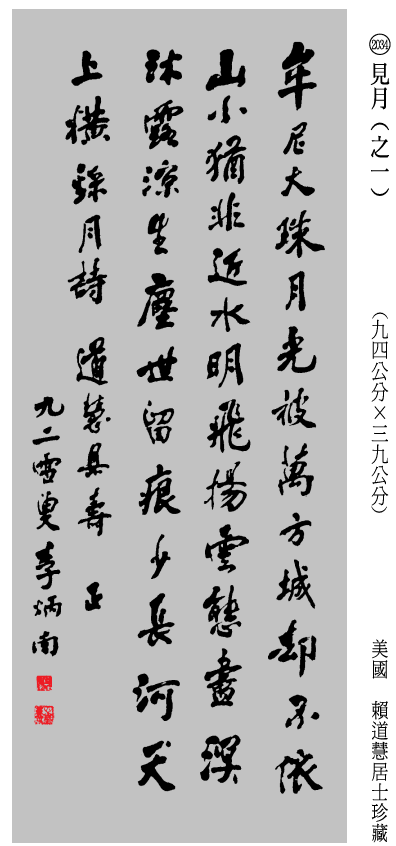 2034 見月（之一）
（九四公分×三九公分）
美國 賴道慧居士珍藏
牟尼大珠月光被萬方城却不依
山小猶非近水明飛揚雲態盡溟
沐露涼生塵世留痕少長河天
上橫 錄月詩 道慧具壽 正
九二雪叟李炳南